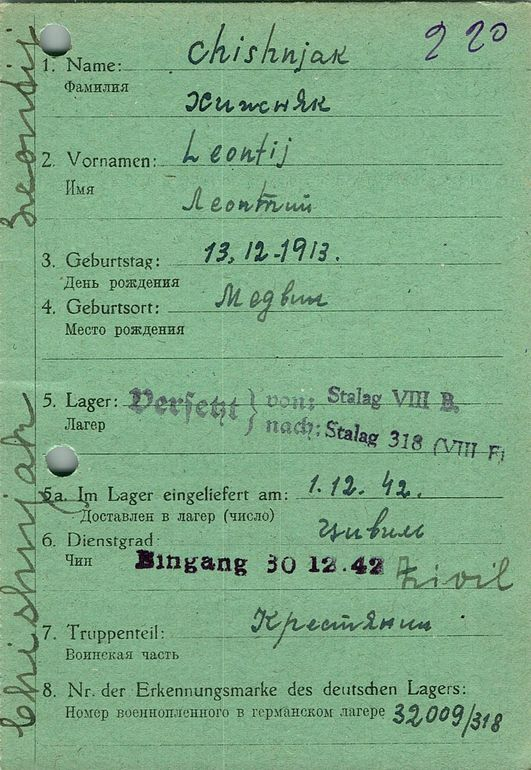 2 20
1. Name: Chishnjak
Фамилия
Хижняк
2. Vornamen: Leontij
Имя
Леонтий
3. Geburtstag: 13.12-1913.
День рождения
4. Geburtsort: Медвин
Место рождения
5. Lager: Versetzt } von: Stalag VIII B.
Лагер
nach: Stalag 318 (VIII F)
5a. Im Lager eingeliefert am: 1.12.42.
Доставлен в лагер (число)
6. Dienstgrad: цивил
Чин
Eingang 30 12.42 Zivil
7. Truppenteil: Крестянин
Воинская часть
8. Nr. der Erkennungsmarke des deutschen Lagers:
Номер военнопленного в германском лагере 32009/318
Chishnjak Leontij